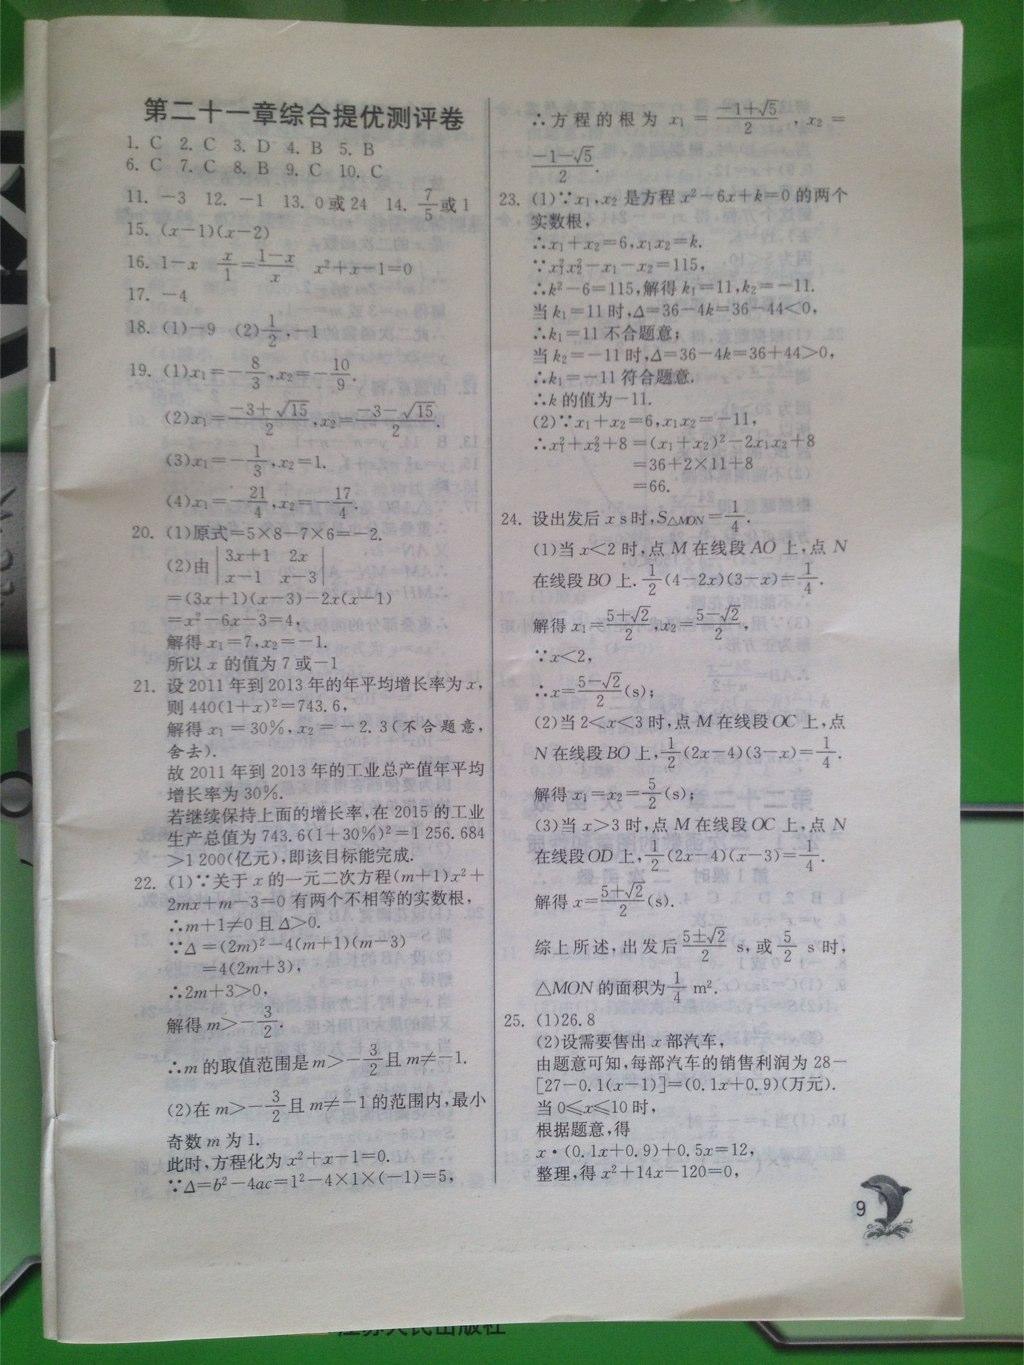 第二十一章综合提优测评卷
1. C 2. C 3. D 4. B 5. B
6. C 7. C 8. B 9. C 10. C
11. －3 12. －1 13. 0或24 14. 7/5或1
15. (x－1)(x－2)
16. 1－x x/1=(1－x)/x x²+x－1=0
17. －4
18. (1)－9 (2)1/2,－1
19. (1)x₁=－8/3,x₂=－10/9.
(2)x₁=(－3+√15)/2,x₂=(－3－√15)/2.
(3)x₁=－1/3,x₂=1.
(4)x₁=－21/4,x₂=－17/4.
20. (1)原式=5×8－7×6=－2.
(2)由|3x+1 2x|
|x－1 x－3|
=(3x+1)(x－3)－2x(x－1)
=x²－6x－3=4,
解得x₁=7,x₂=－1.
所以x的值为7或－1
21. 设2011年到2013年的年平均增长率为x,
则440(1+x)²=743.6,
解得x₁=30%,x₂=－2.3(不合题意,
舍去).
故2011年到2013年的工业总产值年平均
增长率为30%.
若继续保持上面的增长率,在2015的工业
生产总值为743.6(1+30%)²=1 256.684
>1 200(亿元),即该目标能完成.
22. (1)∵关于x的一元二次方程(m+1)x²+
2mx+m－3=0有两个不相等的实数根,
∴m+1≠0且Δ>0.
∵Δ=(2m)²－4(m+1)(m－3)
=4(2m+3),
∴2m+3>0,
解得m>－3/2.
∴m的取值范围是m>－3/2且m≠－1.
(2)在m>－3/2且m≠－1的范围内,最小
奇数m为1.
此时,方程化为x²+x－1=0.
∵Δ=b²－4ac=1²－4×1×(－1)=5,
∴方程的根为x₁=(－1+√5)/2,x₂=
(－1－√5)/2.
23. (1)∵x₁,x₂是方程x²－6x+k=0的两个
实数根,
∴x₁+x₂=6,x₁x₂=k.
∵x₁²x₂²－x₁－x₂=115,
∴k²－6=115,解得k₁=11,k₂=－11.
当k₁=11时,Δ=36－4k=36－44<0,
∴k₁=11不合题意;
当k₂=－11时,Δ=36－4k=36+44>0,
∴k₁=－11符合题意.
∴k的值为－11.
(2)∵x₁+x₂=6,x₁x₂=－11,
∴x₁²+x₂²+8=(x₁+x₂)²－2x₁x₂+8
=36+2×11+8
=66.
24. 设出发后x s时,S△MON=1/4.
(1)当x<2时,点M在线段AO上,点N
在线段BO上.1/2(4－2x)(3－x)=1/4.
解得x₁=(5+√2)/2,x₂=(5－√2)/2,
∵x<2,
∴x=(5－√2)/2(s);
(2)当2<x<3时,点M在线段OC上,点
N在线段BO上,1/2(2x－4)(3－x)=1/4.
解得x₁=x₂=5/2(s);
(3)当x>3时,点M在线段OC上,点N
在线段OD上,1/2(2x－4)(x－3)=1/4.
解得x=(5+√2)/2(s).
综上所述,出发后(5±√2)/2 s,或5/2 s时,
△MON的面积为1/4 m².
25. (1)26.8
(2)设需要售出x部汽车,
由题意可知,每部汽车的销售利润为28－
[27－0.1(x－1)]=(0.1x+0.9)(万元).
当0≤x≤10时,
根据题意,得
x·(0.1x+0.9)+0.5x=12,
整理,得x²+14x－120=0,
9
江苏人民出版社